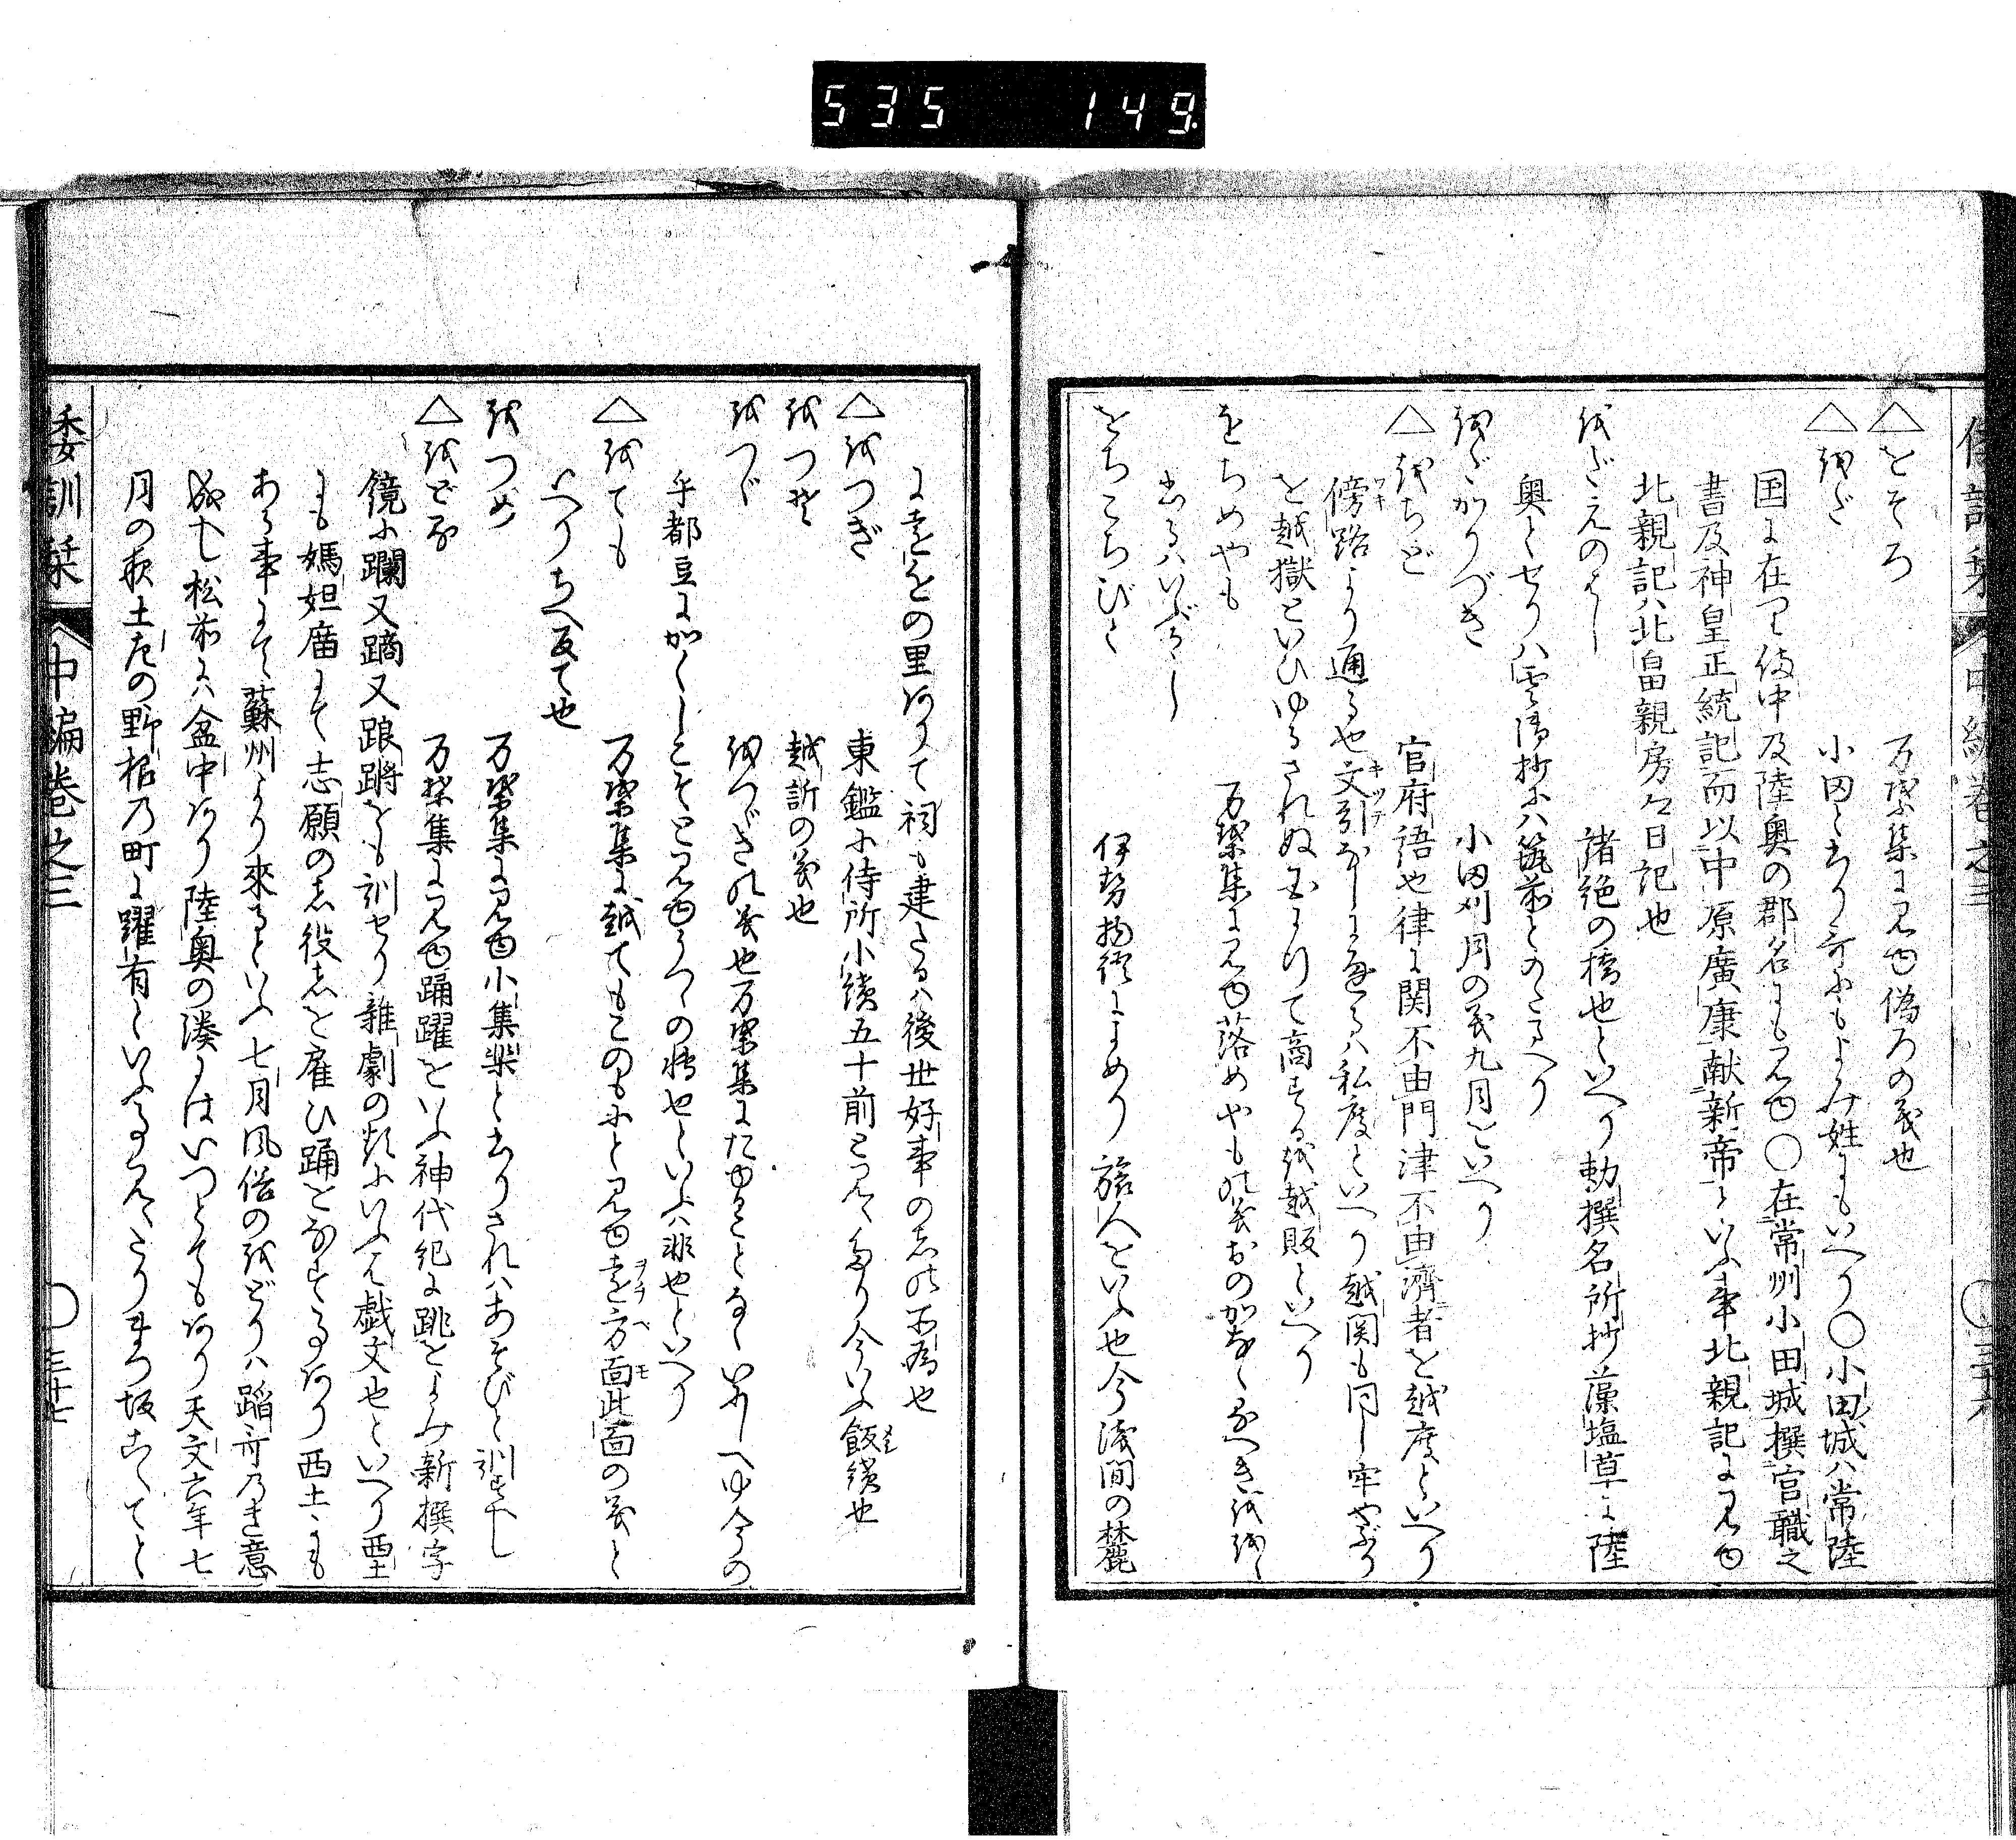 535 149.
倭訓栞 中編巻之三 ○三十六
△をそろ 万葉集に見ゆ偽ろの義也
△をだ 小田とかり哥にもよみ姓にもいへり○小田城ハ常陸
国に在つて備中及陸奥の郡名にも見ゆ○在常州小田城撰官職之
書及神皇正統記而以中原廣康献新帝といふ事北親記に見ゆ
北親記ハ北畠親房公日記也
をだえのはし 諸絶の橋也といへり勅撰名所抄藻塩草に陸
奥とせり八雲御抄にハ筑前とのたまへり
をだかりづき 小田刈月の義九月といへり
△をちど 官府語也律に関不由門津不由済者を越度といへり
傍路より通る也文引なしに通るハ私度といへり越関も同し牢やぶり
を越獄といひゆるされぬ玉にりて商するを越販といへり
をちめやも 万葉集に見ゆ落めやもの義おのかなくなへきををく
かるハいぶかし
をちこちびと 伊勢物語によめり旅人をいふ也今浅間の麓
にをとをの里ありて祠も建たるハ後世好事のものゝ所為也
△をつぎ 東鑑に侍所小績五十前と見えたり今いふ飯績也
をつそ 越訴の義也
をつづ をつづきの義也万葉集にたゆることなくいにしへゆ今の
乎都豆にかくしこそと見ゆうつゝの転也といふハ非也といへり
△をても 万葉集に越てもこのもにと見ゆ遠方面此面の義と
いへりちへ反て也
をつめ 万葉集に見ゆ小集楽とかりされハあそびと訓すへし
△をどる 万葉集に見ゆ踊躍をいふ神代紀に跳をよみ新撰字
鏡に躝又蹢又踉蹡をも訓せり雑劇の類にいふハ戯文也といへり西土
にも媽妲廟にて志願のもの役者を雇ひ踊をなする事あり西土にも
ある事にて蘇州より來るといふ七月風俗のをどりハ蹈哥のき意
成へし松前にハ盆中あり陸奥の湊にはいつとても有り天文六年七
月の夜土佐の野根の町に躍有といふ事見えたりまつ坂こえてと
倭訓栞 中編巻之三 ○三十七